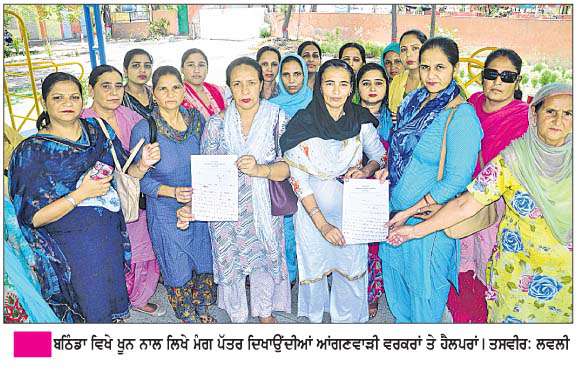 ਬਠਿੰਡਾ ਵਿਖੇ ਖੂਨ ਨਾਲ ਲਿਖੇ ਮੰਗ ਪੱਤਰ ਦਿਖਾਉਂਦੀਆਂ ਆਂਗਣਵਾੜੀ ਵਰਕਰਾਂ ਤੇ ਹੈਲਪਰਾਂ। ਤਸਵੀਰ: ਲਵਲੀ